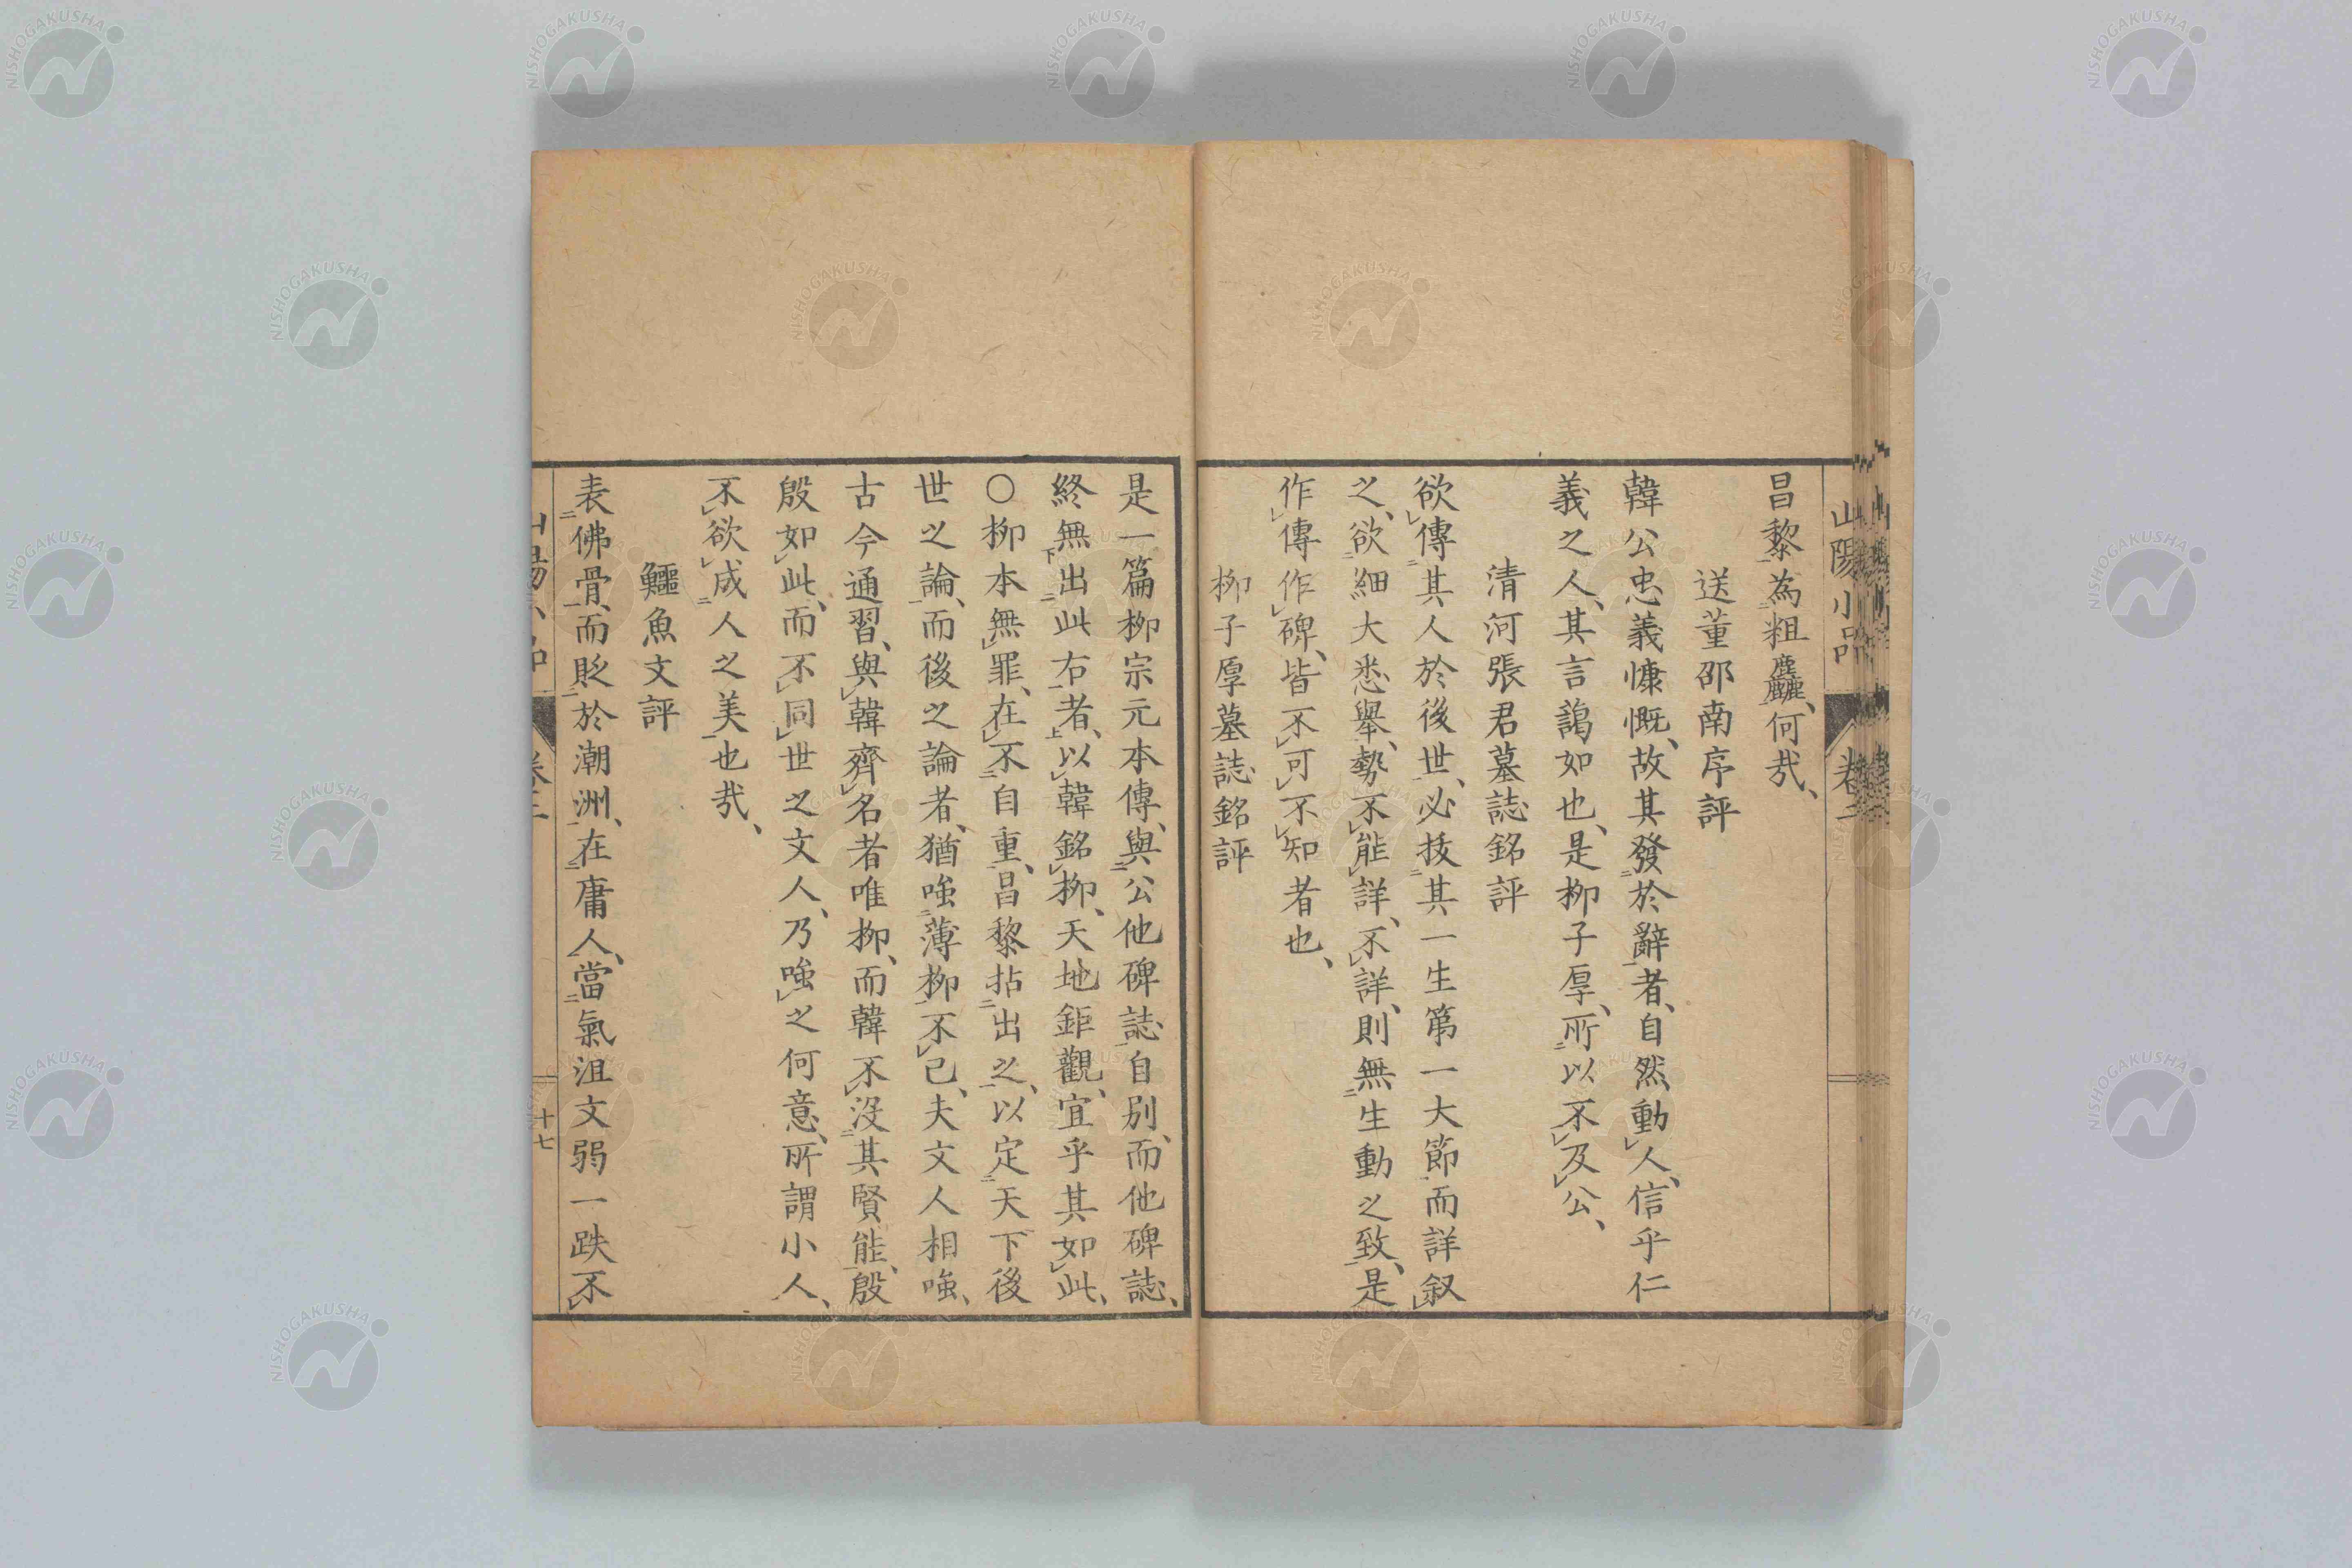 山陽小品 卷二
昌黎為粗麤、何哉、
送董邵南序評
韓公忠義慷慨、故其發於辭者、自然動人、信乎仁
義之人、其言藹如也、是柳子厚、所以不及公、
清河張君墓誌銘評
欲傳其人於後世、必拔其一生第一大節而詳叙
之、欲細大悉舉、勢不能詳、不詳、則無生動之致、是
作傳作碑、皆不可不知者也、
柳子厚墓誌銘評
是一篇柳宗元本傳、與公他碑誌自別、而他碑誌、
終無出此右者、以韓銘柳、天地鉅觀、宜乎其如此、
○柳本無罪、在不自重、昌黎拈出之、以定天下後
世之論、而後之論者、猶嗤薄柳不已、夫文人相嗤、
古今通習、與韓齊名者唯柳、而韓不沒其賢能、殷
殷如此、而不同世之文人、乃嗤之何意、所謂小人、
不欲成人之美也哉、
鱷魚文評
表佛骨、而貶於潮洲、在庸人、當氣沮文弱一跌不
十七
NISHOGAKUSHA